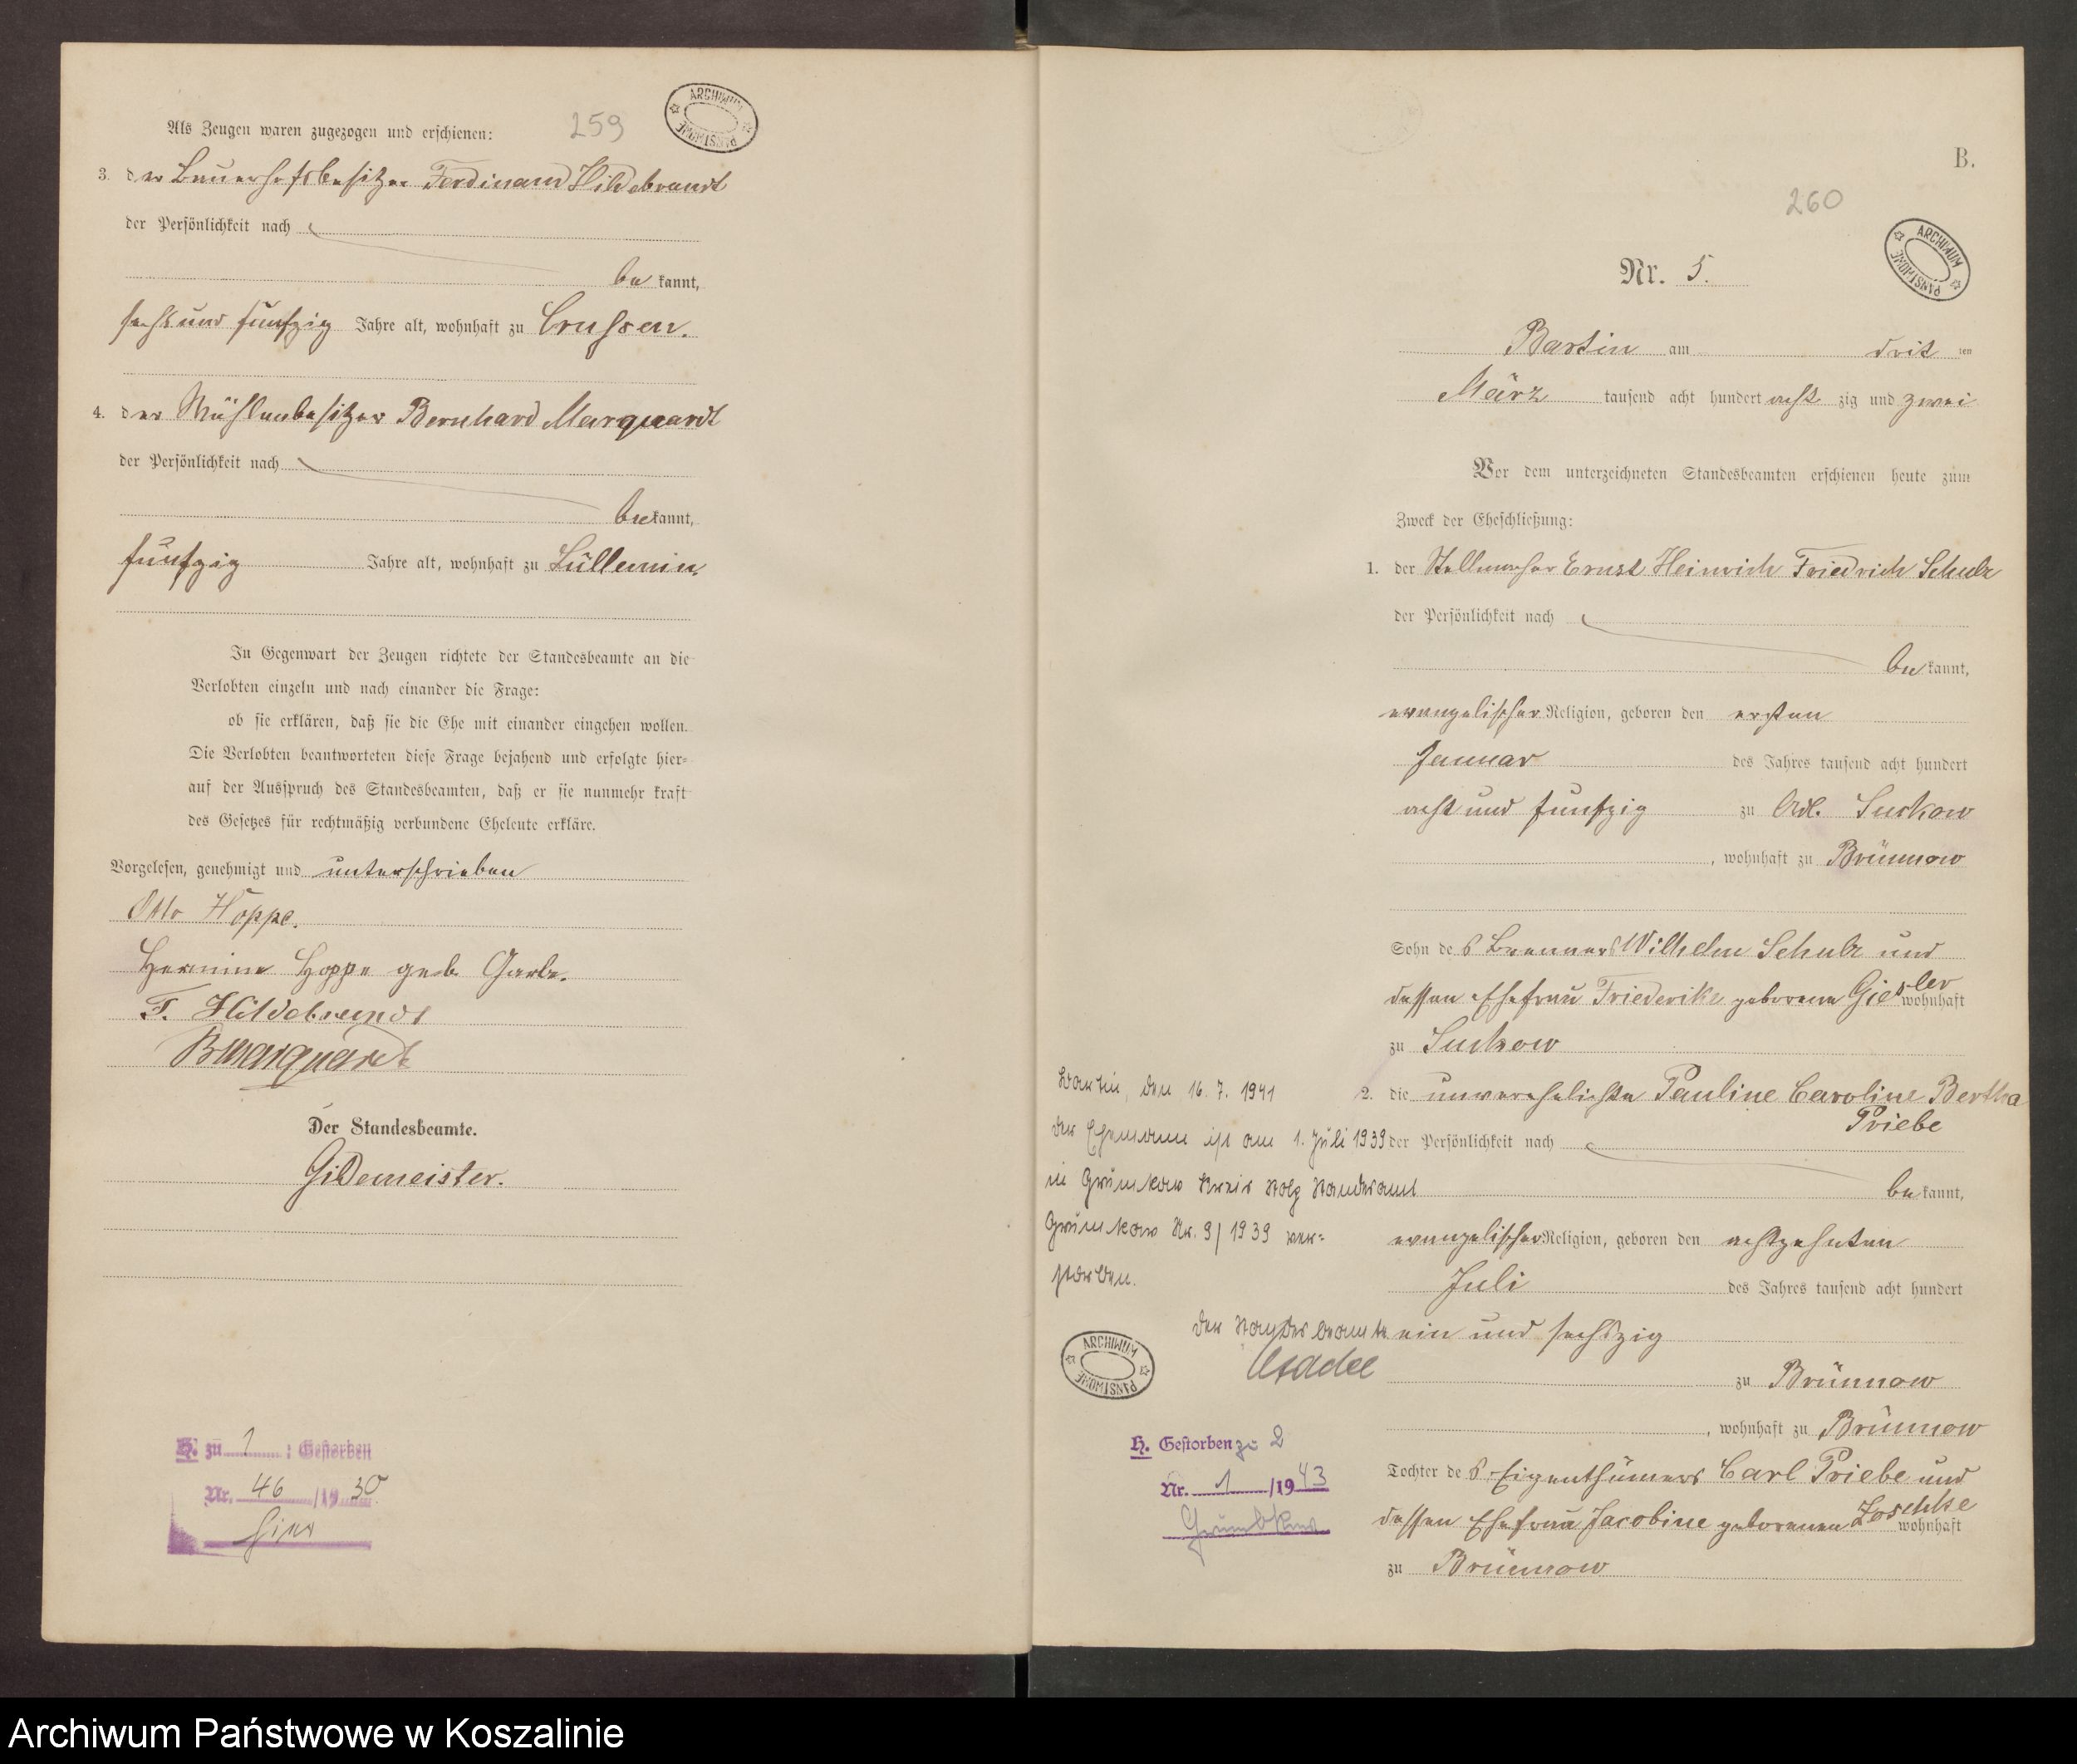 Als Zeugen waren zugezogen und erschienen:
259
ARCHIWUM PAŃSTWOWE
3. der Bauerhofsbesitzer Ferdinand Hildebrandt
der Persönlichkeit nach
be kannt,
sechs und fünfzig Jahre alt, wohnhaft zu Crussen.
4. der Mühlenbesitzer Bernhard Marquardt
der Persönlichkeit nach
be kannt,
fünfzig Jahre alt, wohnhaft zu Lüllemin.
In Gegenwart der Zeugen richtete der Standesbeamte an die
Verlobten einzeln und nach einander die Frage:
ob sie erklären, daß sie die Ehe mit einander eingehen wollen.
Die Verlobten beantworteten diese Frage bejahend und erfolgte hier-
auf der Ausspruch des Standesbeamten, daß er sie nunmehr kraft
des Gesetzes für rechtmäßig verbundene Eheleute erkläre.
Vorgelesen, genehmigt und unterschrieben
Otto Hoppe.
Hermine Hoppe geb. Garbe.
F. Hildebrandt
B Marquardt
Der Standesbeamte.
Gildemeister.
H. zu 1 : Gestorben
Nr. 46 /19 30
B.
260
ARCHIWUM PAŃSTWOWE
Nr. 5.
Bartin am drit ten
März tausend acht hundert acht zig und zwei
Vor dem unterzeichneten Standesbeamten erschienen heute zum
Zweck der Eheschließung:
1. der Stellmacher Ernst Heinrich Friedrich Schulz
der Persönlichkeit nach
be kannt,
evangelischer Religion, geboren den ersten
Januar des Jahres tausend acht hundert
acht und fünfzig zu Adl. Suckow
, wohnhaft zu Brünnow
Sohn de s Brenners Wilhelm Schulz und
dessen Ehefrau Friederike geborene Giesler wohnhaft
zu Suckow
2. die unverehelichte Pauline Caroline Bertha
Priebe
der Persönlichkeit nach
be kannt,
evangelischer Religion, geboren den achtzehnten
Juli des Jahres tausend acht hundert
ein und sechszig
zu Brünnow
, wohnhaft zu Brünnow
Tochter de s Eigenthümers Carl Priebe und
dessen Ehefrau Jacobine geborenen Zoschke wohnhaft
zu Brünnow
Bartin, den 16. 7. 1941
Der Ehemann ist am 1. Juli 1939
in Grümkow Kreis Stolp Standesamt
Grümkow Nr. 9/1939 ver-
storben.
Der Standesbeamte
ARCHIWUM PAŃSTWOWE
H. Gestorben zu 2
Nr. 1 /19 43
Grumbkow
Archiwum Państwowe w Koszalinie